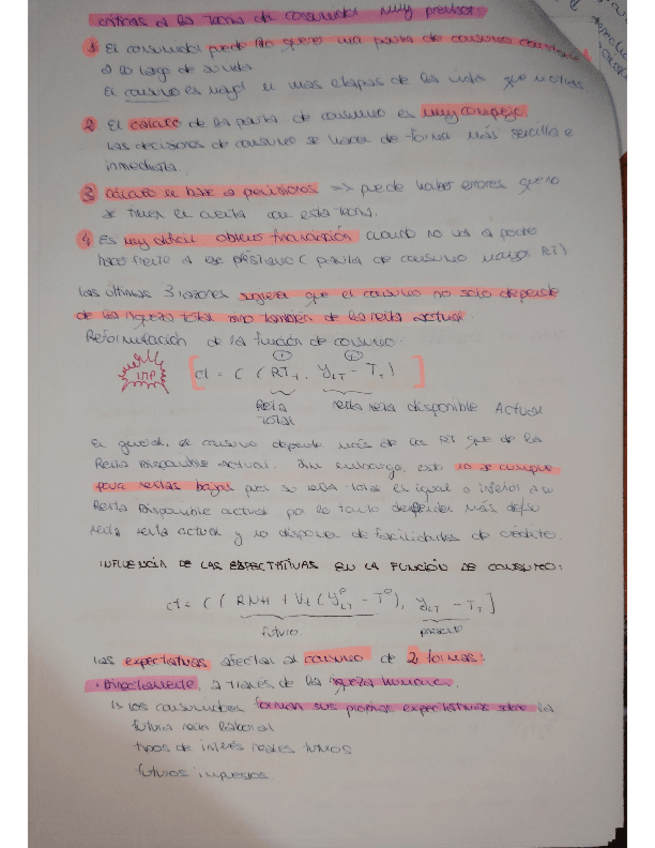 críticas a la Teoría del consumidor muy previsor:
1 El consumidor puede no querer una pauta de consumo constante
a lo largo de su vida
El consumo es mayor en unas etapas de la vida que en otras.
2 El cálculo de la pauta de consumo es muy complejo.
Las decisiones de consumo se hacen de forma más sencilla e
inmediata.
3 Cálculo se basa a previsiones => puede haber errores que no
se tienen en cuenta con esta teoría.
4 Es muy difícil obtener financiación cuando no vas a poder
hacer frente a ese préstamo (pauta de consumo mayor RT)
Las últimas 3 razones sugieren que el consumo no solo depende
de la riqueza total sino también de la renta actual.
Reformulación de la función de consumo.
1 2
IMP Ct = C (RTt, YLT - Tt)
Renta renta disponible Actual
TOTAL
En general, el consumo depende más de la RT que de la
Renta Disponible actual. Sin embargo, esto no se cumple
para rentas bajas pues su renta total es igual o inferior a su
Renta Disponible actual por lo tanto depender más de su
renta actual y no disponer de facilidades de crédito.
INFLUENCIA DE LAS EXPECTATIVAS EN LA FUNCIÓN DE CONSUMO:
Ct = C ( RNH + Vt (YeLT - Te), YLT - Tt ]
futuro. presente
Las expectativas afectan al consumo de 2 formas:
· Directamente, a través de la riqueza humana.
los consumidores forman sus propias expectativas sobre la
futura renta laboral
tipos de interés reales futuros
futuros impuestos.